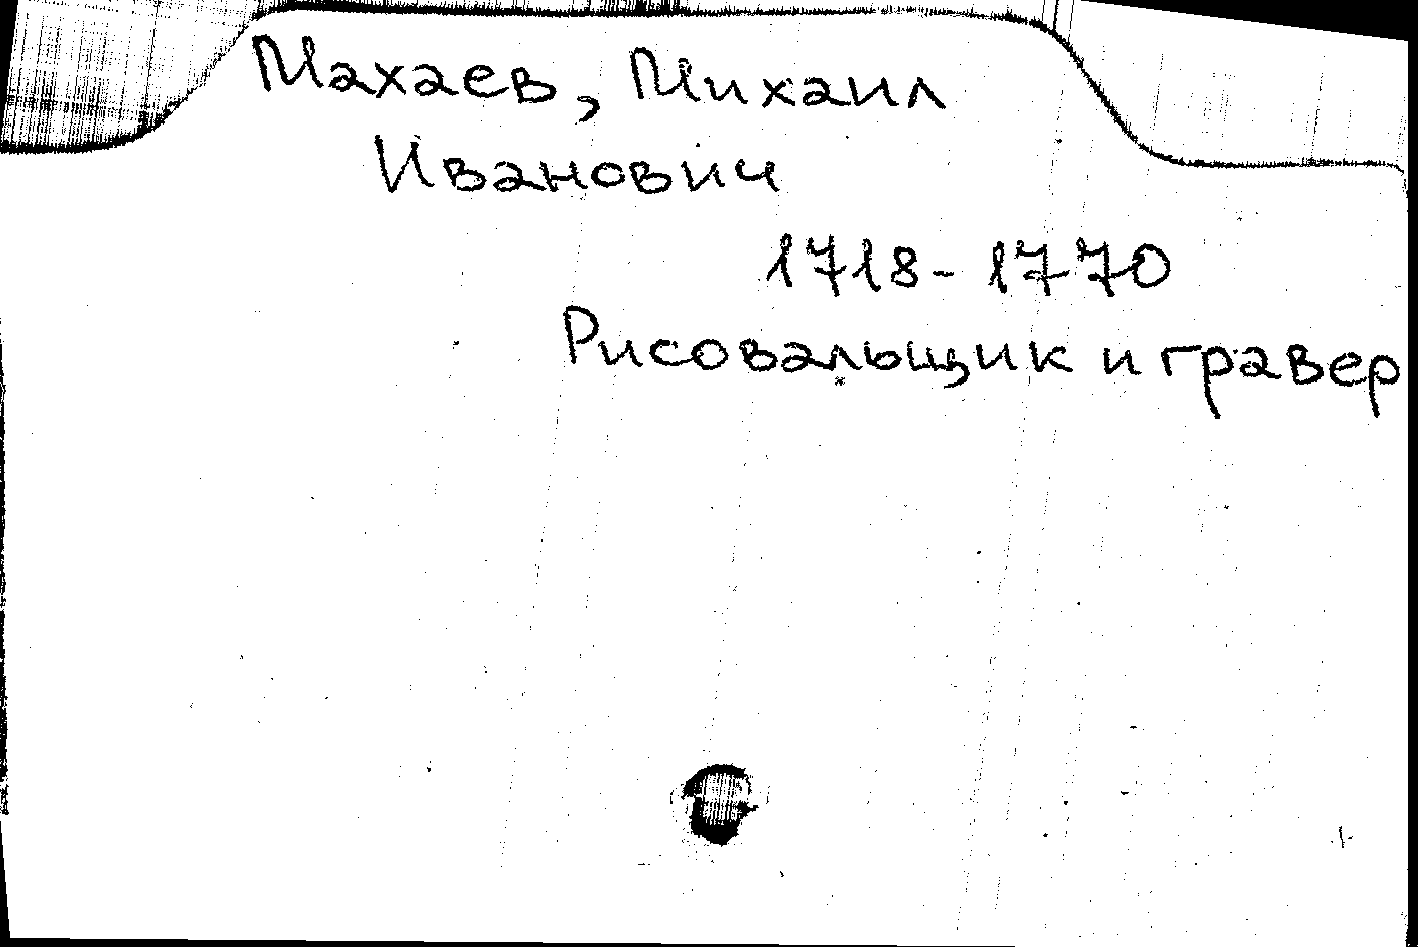 Махаев, Михаил
Иванович
1718-1770
Рисовальщик и гравер